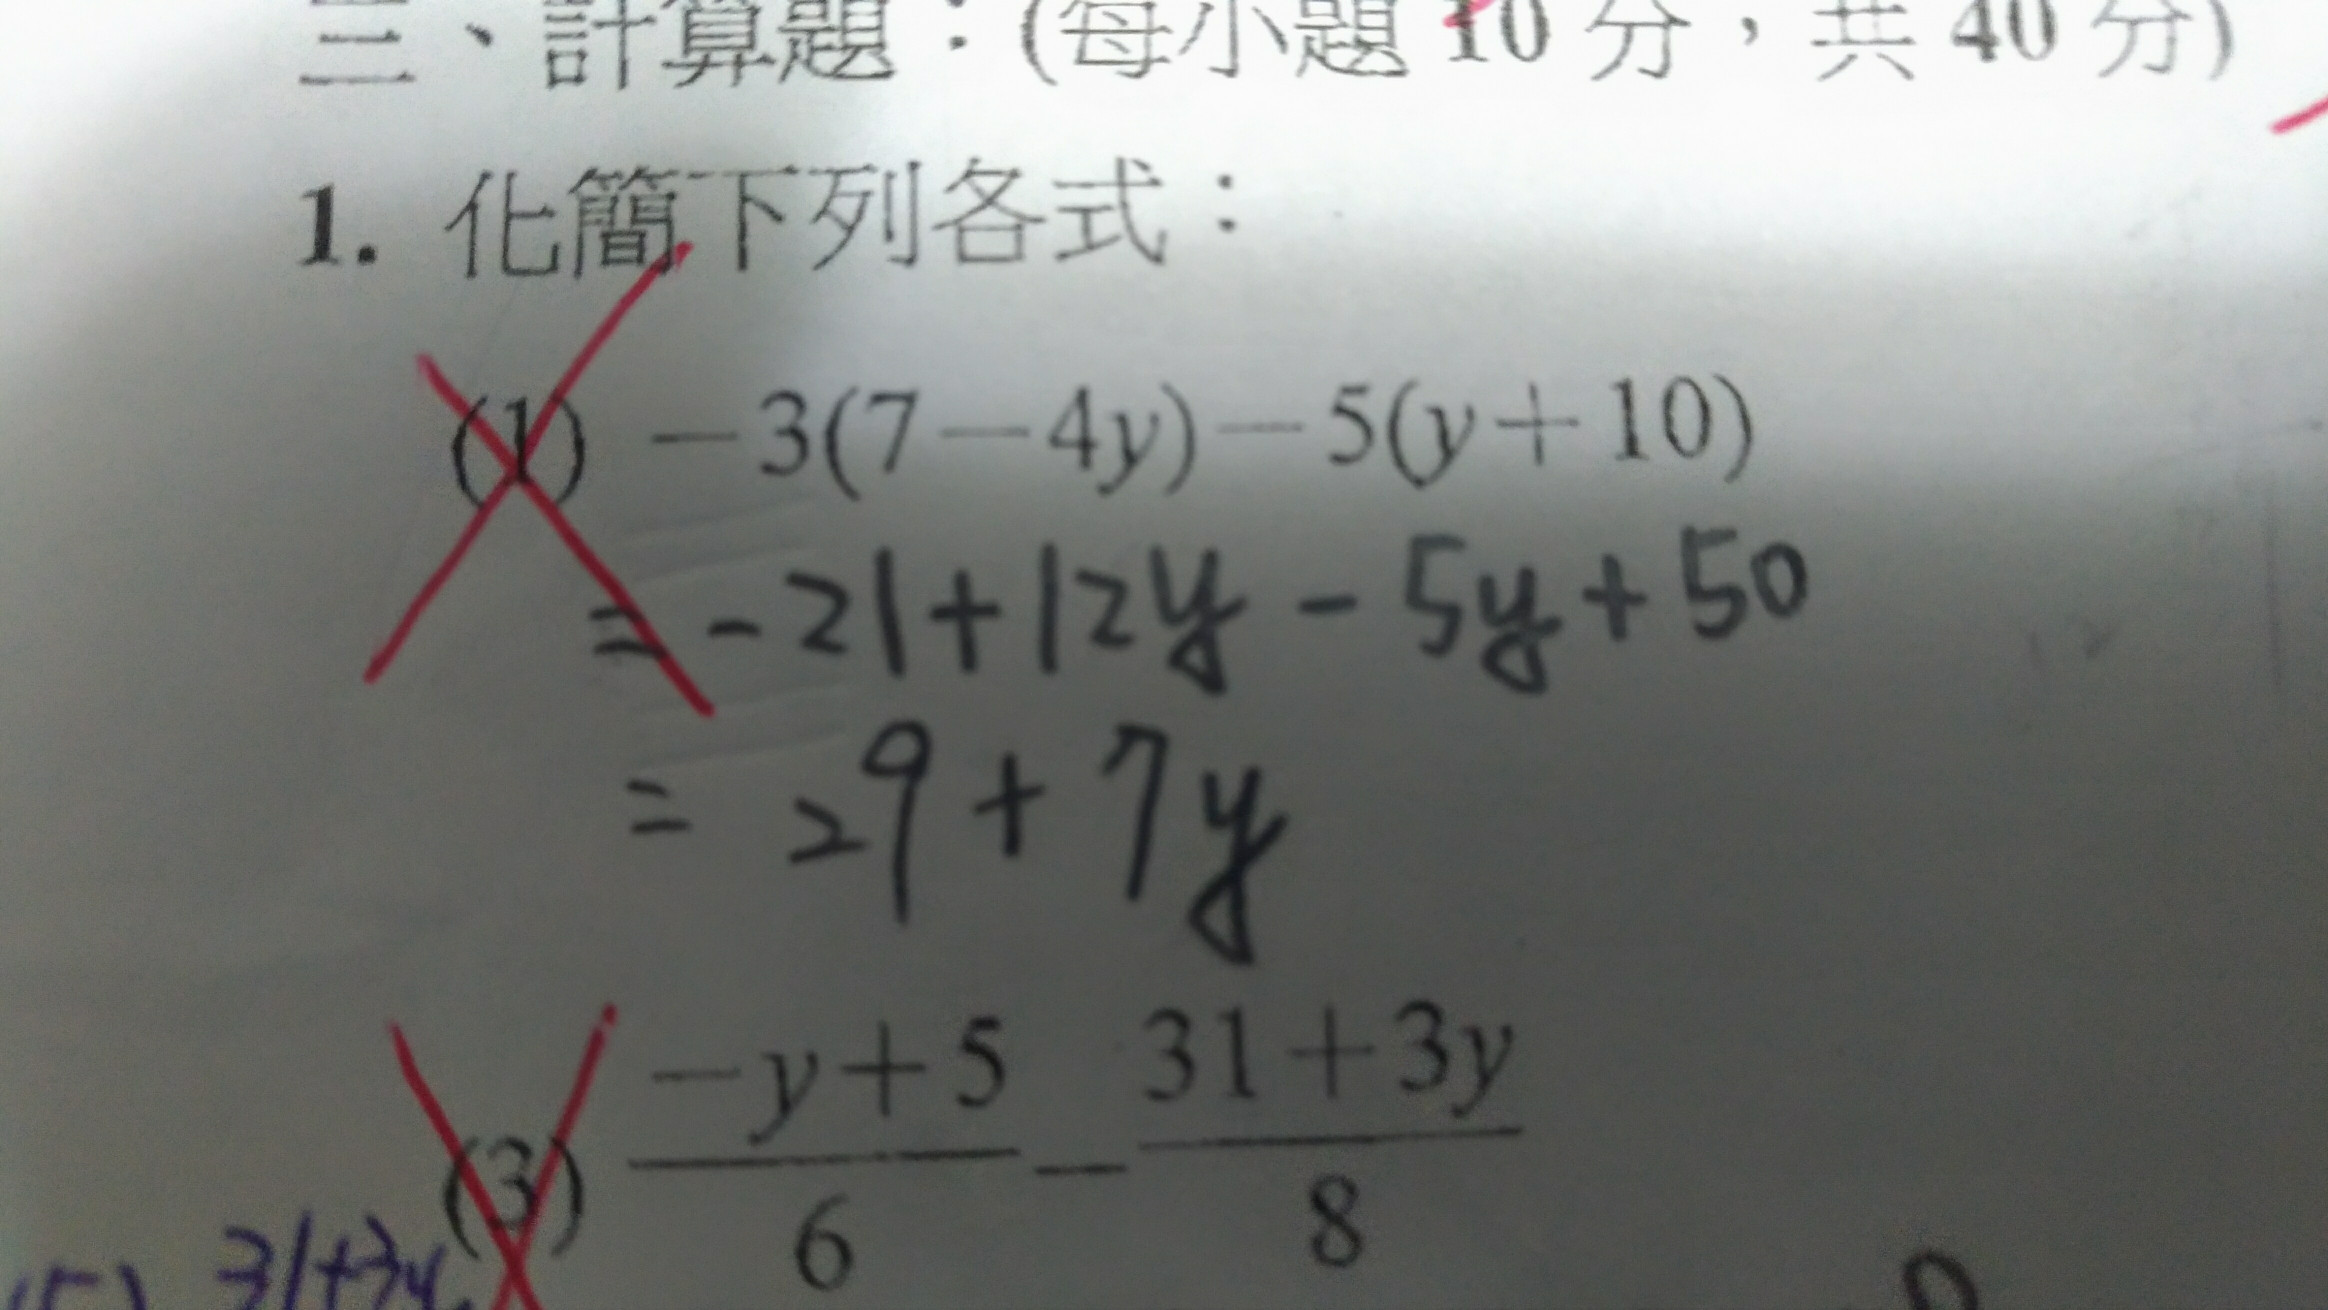 三、計算題：(每小題 10 分，共 40 分)
1. 化簡下列各式：
(1) －3(7－4y)－5(y＋10)
= -21+12y - 5y+50
= 29+7y
(3) \frac{-y+5}{6} - \frac{31+3y}{8}
31+3y